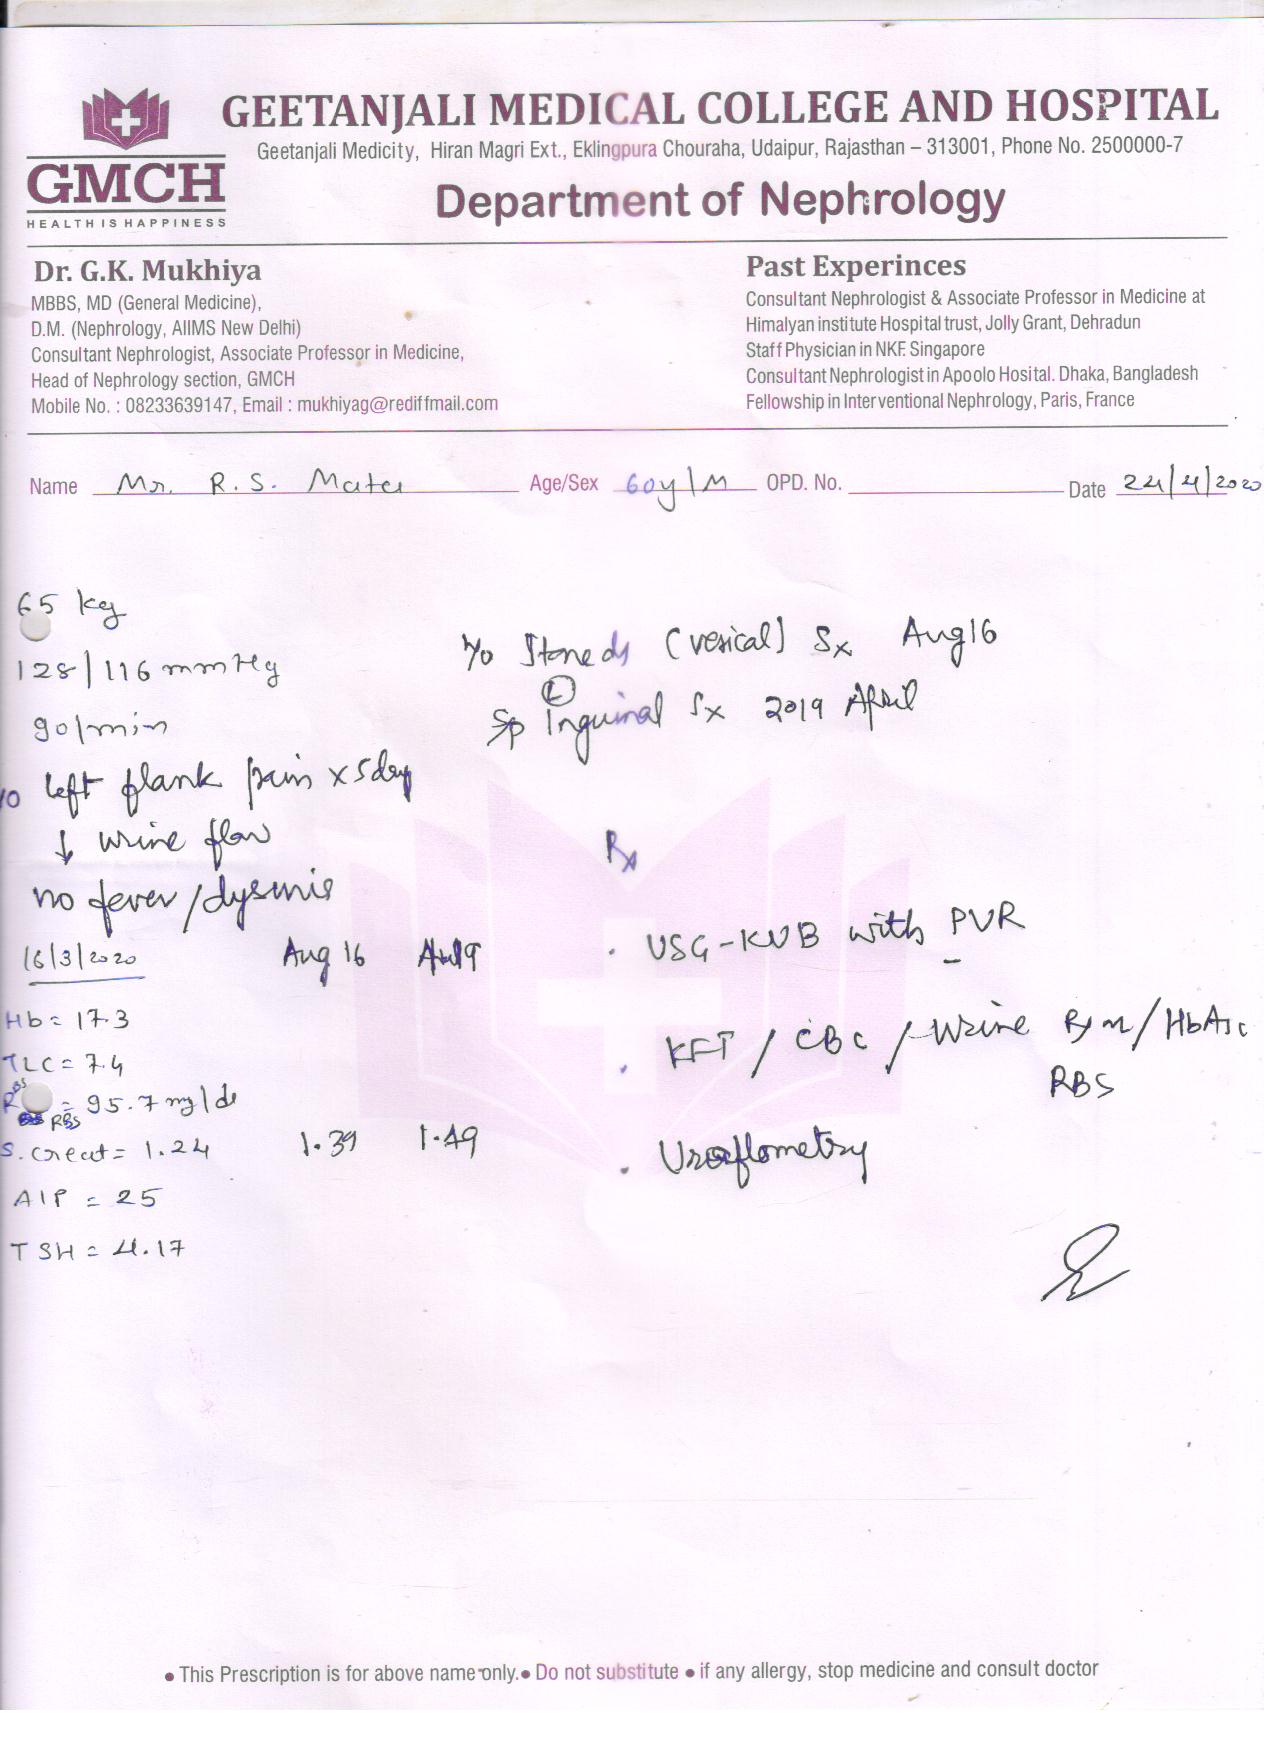 GEETANJALI MEDICAL COLLEGE AND HOSPITAL
Geetanjali Medicity, Hiran Magri Ext., Eklingpura Chouraha, Udaipur, Rajasthan – 313001, Phone No. 2500000-7
GMCH
HEALTH IS HAPPINESS
Department of Nephrology
Dr. G.K. Mukhiya
MBBS, MD (General Medicine),
D.M. (Nephrology, AIIMS New Delhi)
Consultant Nephrologist, Associate Professor in Medicine,
Head of Nephrology section, GMCH
Mobile No. : 08233639147, Email : mukhiyag@rediffmail.com
Past Experinces
Consultant Nephrologist & Associate Professor in Medicine at
Himalyan institute Hospital trust, Jolly Grant, Dehradun
Staff Physician in NKF. Singapore
Consultant Nephrologist in Apoolo Hosital. Dhaka, Bangladesh
Fellowship in Interventional Nephrology, Paris, France
Name Mr. R.S. Age/Sex 60y/M OPD. No. Date 24/4/2020
65 kg
128/116 mmHg
90/min
left flank pain x 5day
↓ urine flow
no fever/
H/o Stone ds (vesical) Sx Aug 16
Sp (L) Inguinal Sx 2019 April
16/3/2020 Aug 16
Hb = 17.3
TLC = 7.4
RBS = 95.7 mg/dl
S. Creat = 1.24 1.39 1.49
= 25
TSH = 4.17
Rx
. USG-KUB with PVR
. KFT / CBC / Urine R/M / HbA1c
RBS
. Uroflometry
• This Prescription is for above name only. • Do not substitute • if any allergy, stop medicine and consult doctor